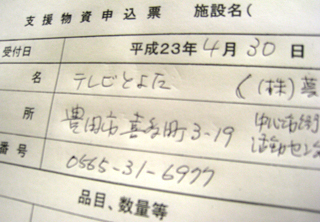 支援物資申込票 施設名(
受付日 平成23年4月30日
名 テレビとよた (株)
所 豊田市喜多町3-19
活動セン
番号 0565-31-6977
品目、数量等